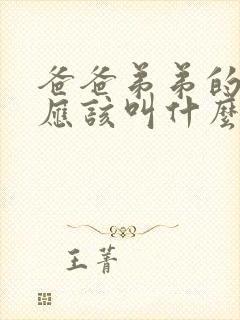 爸爸弟弟的
应该叫什麼
王菁